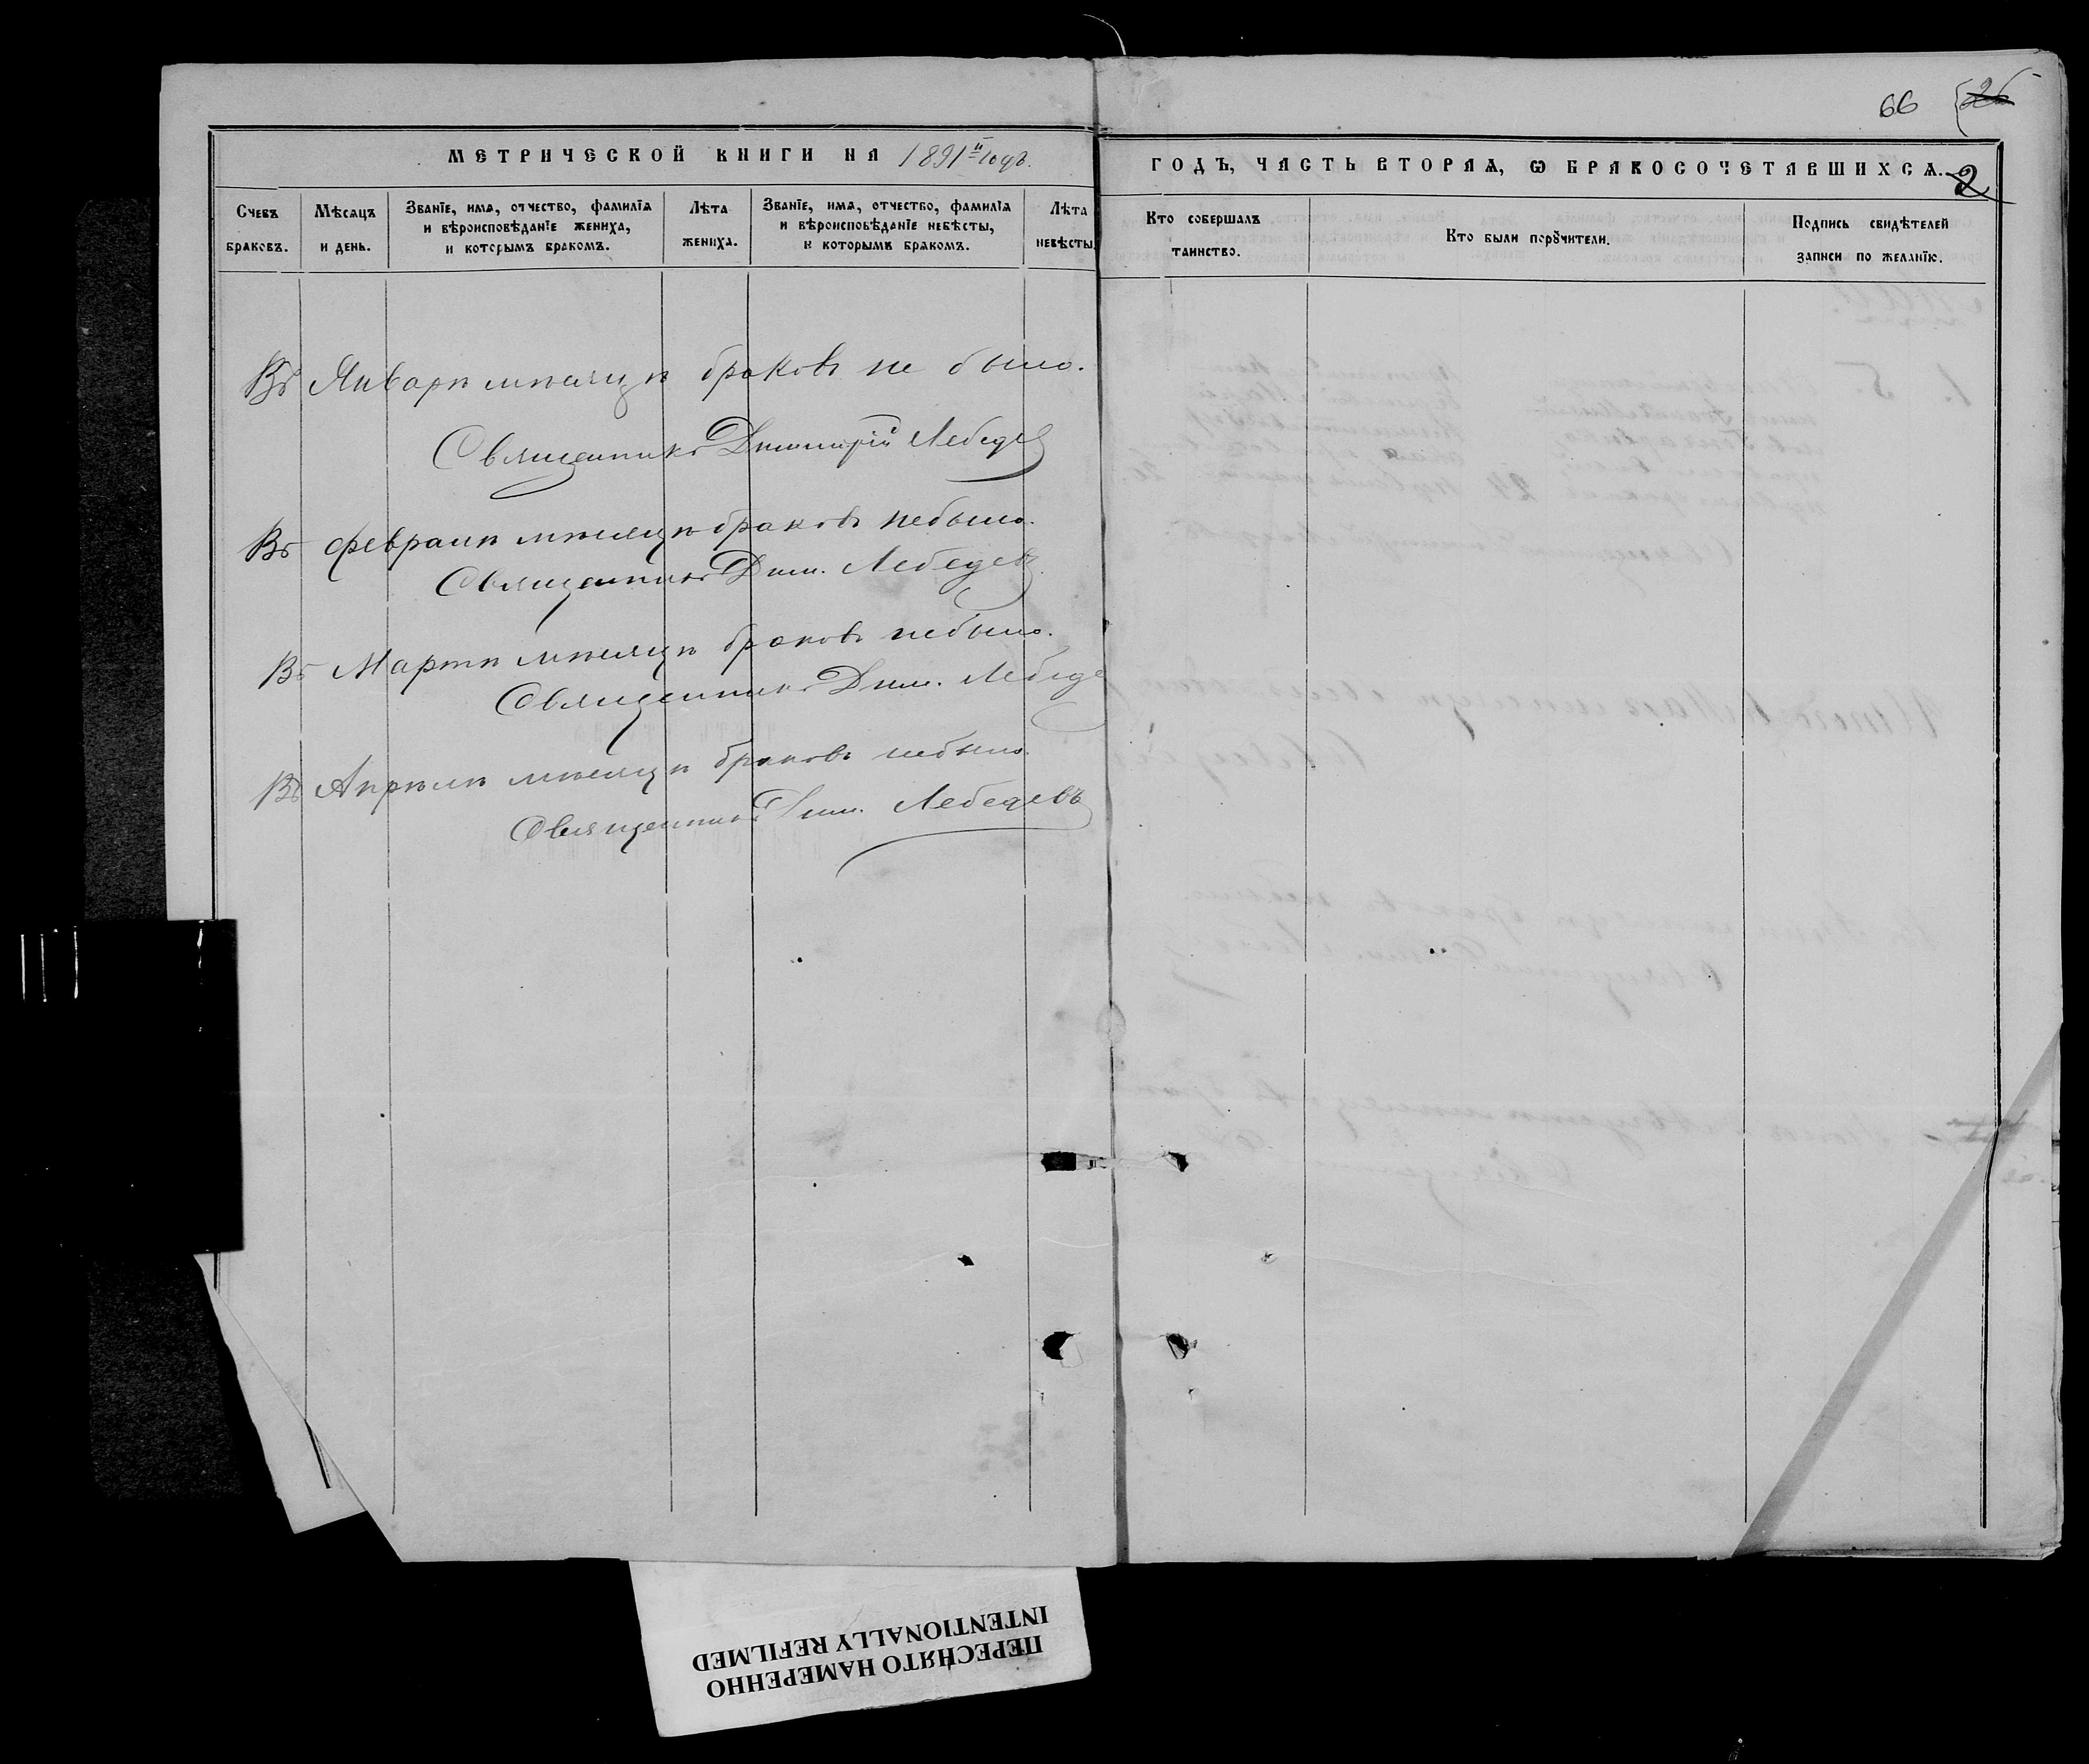 66 26
МЕТРИЧЕСКОЙ КНИГИ НА 1891й годъ.
ГОДЪ, ЧАСТЬ ВТОРАѦ, Ѡ БРАКОСОЧЕТАВШИХСѦ. 2
Счетъ браковъ.
Мѣсяцъ и день.
Званїе, имѧ, отчество, фамилїѧ и вѣроисповѣданїе жениха, и которымъ бракомъ.
Лѣта жениха.
Званїе, имѧ, отчество, фамилїѧ и вѣроисповѣданїе невѣсты, и которымъ бракомъ.
Лѣта невѣсты
Кто совершалъ таинство.
Кто были порꙋчители.
Подпись свидѣтелей записи по желанїю.
Въ Январѣ мѣсяцѣ браковъ не было.
Священникъ Димитрій Лебедев
Въ Февралѣ мѣсяцѣ браковъ небыло.
Священникъ Дим. Лебедевъ
Въ Мартѣ мѣсяцѣ браковъ небыло.
Священникъ Дим. Лебеде
Въ Апрѣлѣ мѣсяцѣ браковъ небыло.
Священникъ Дим. Лебедевъ
ПЕРЕСНЯТО НАМЕРЕННО
INTENTIONALLY REFILMED